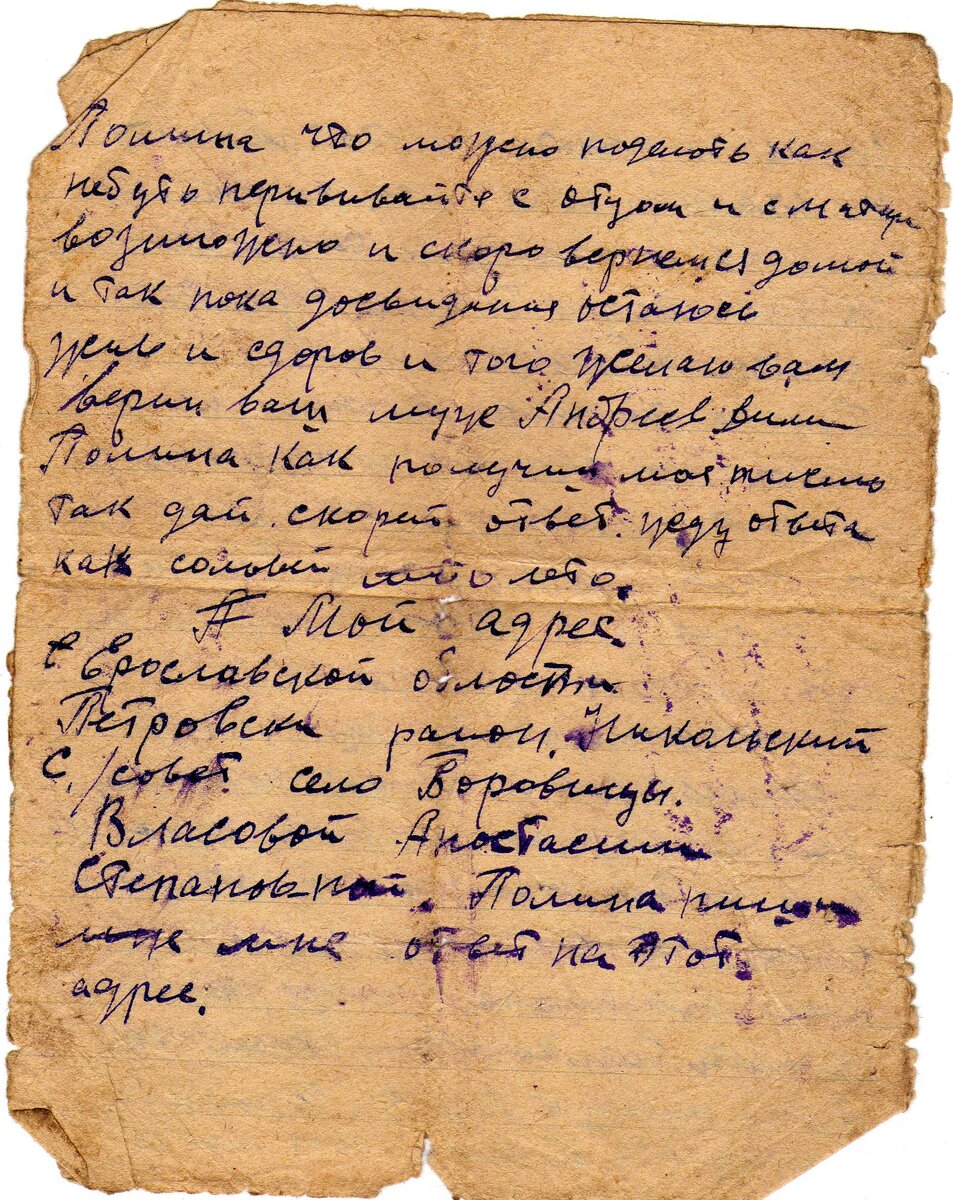 Полина что можно поделоть как
небуть перививайте с отцом и с матери
возиможно и скоро вернемся домой
и так пока досвидания остаюсь
жив и сдоров и того желаю вам
верни ваш муже Андреев
Полина как получиш моя писмо
так дай скорей ответ. жеду ответа
как соловей лето.
Мой адрес.
Ерославской области
Петровски раион. Никольский
с/совет село Боровицы.
Власовой Аностасии
Степановной. Полина пиши
мне ответ на этот
адрес.